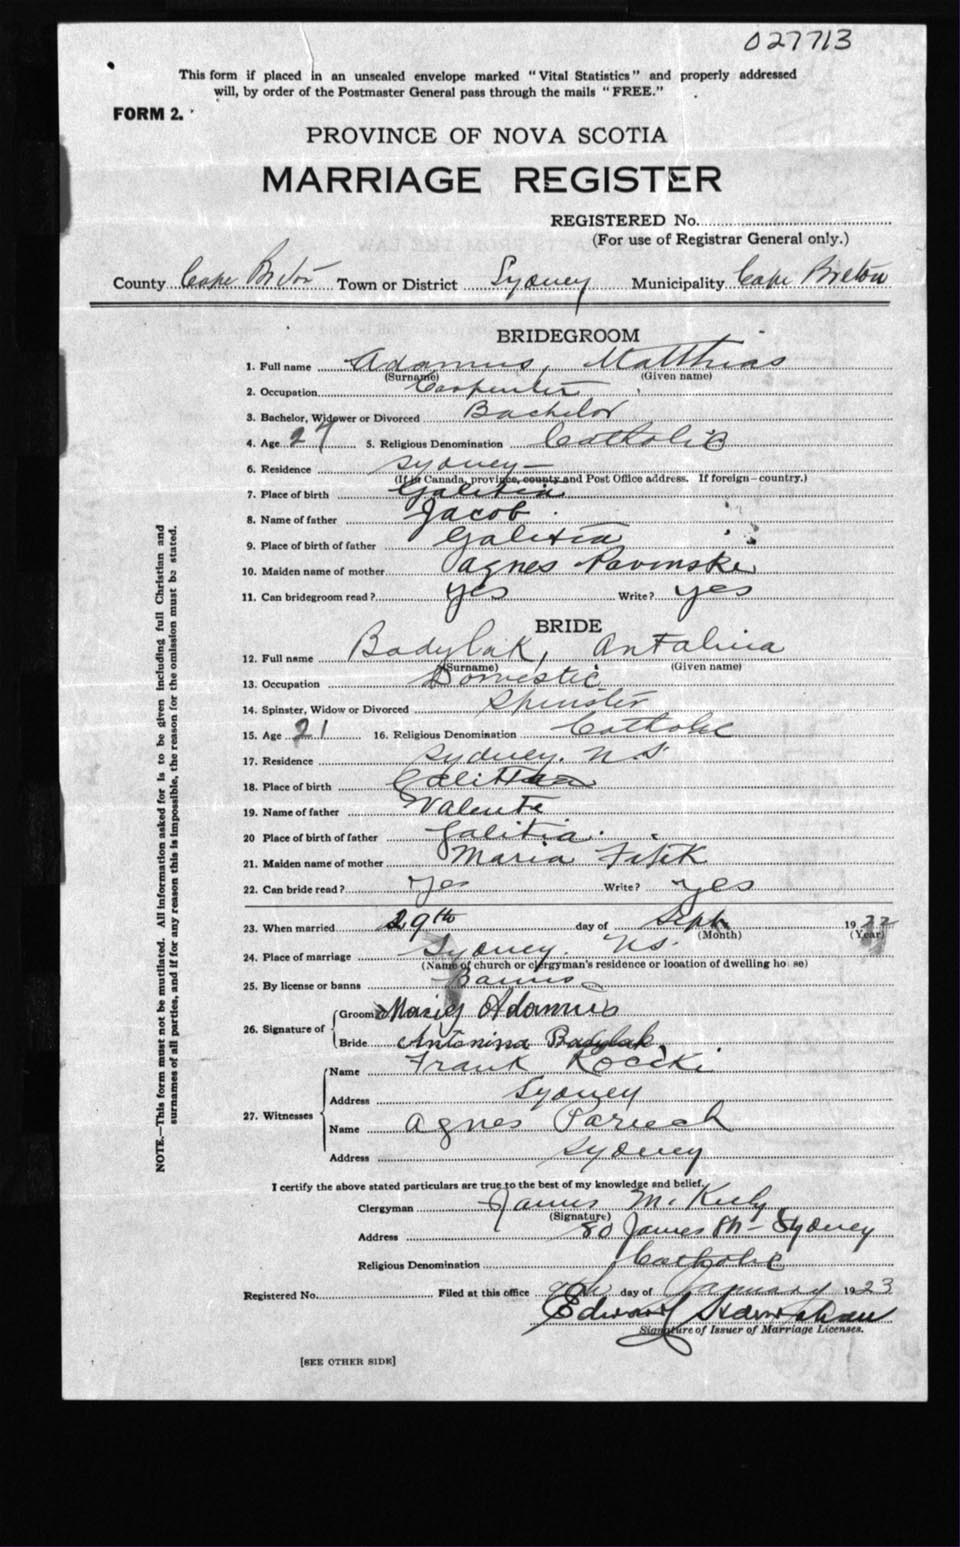 027713
This form if placed in an unsealed envelope marked "Vital Statistics" and properly addressed
will, by order of the Postmaster General pass through the mails "FREE."
FORM 2.
PROVINCE OF NOVA SCOTIA
MARRIAGE REGISTER
REGISTERED No.
(For use of Registrar General only.)
County Cape Breton Town or District Sydney Municipality Cape Breton
BRIDEGROOM
1. Full name Adamus, Matthias
(Surname) (Given name)
2. Occupation Carpenter
3. Bachelor, Widower or Divorced Bachelor
4. Age 27 5. Religious Denomination Catholic
6. Residence Sydney
(If in Canada, province, county and Post Office address. If foreign—country.)
7. Place of birth Galitia
8. Name of father Jacob
9. Place of birth of father Galitia
10. Maiden name of mother Agnes Pavinske
11. Can bridegroom read? yes Write? yes
BRIDE
12. Full name Badylak, Antalina
(Surname) (Given name)
13. Occupation Domestic
14. Spinster, Widow or Divorced Spinster
15. Age 21 16. Religious Denomination Catholic
17. Residence Sydney. N.S.
18. Place of birth Galitia
19. Name of father Valente
20 Place of birth of father Galitia
21. Maiden name of mother Maria
22. Can bride read? Yes Write? yes
23. When married 29th day of Sept 1922
(Month) (Year)
24. Place of marriage Sydney. N.S.
(Name of church or clergyman's residence or location of dwelling house)
25. By license or banns Banns
26. Signature of
Groom Maciej Adamus
Bride Antonina Badylak
27. Witnesses
Name Frank Rocki
Address Sydney
Name Agnes
Address Sydney
I certify the above stated particulars are true to the best of my knowledge and belief.
Clergyman James
(Signature)
Address 80 James St - Sydney
Religious Denomination Catholic
Registered No. Filed at this office 9th day of January 1923
Edward
Signature of Issuer of Marriage Licenses.
[SEE OTHER SIDE]
NOTE.—This form must not be mutilated. All information asked for is to be given including full Christian and
surnames of all parties, and if for any reason this is impossible, the reason for the omission must be stated.